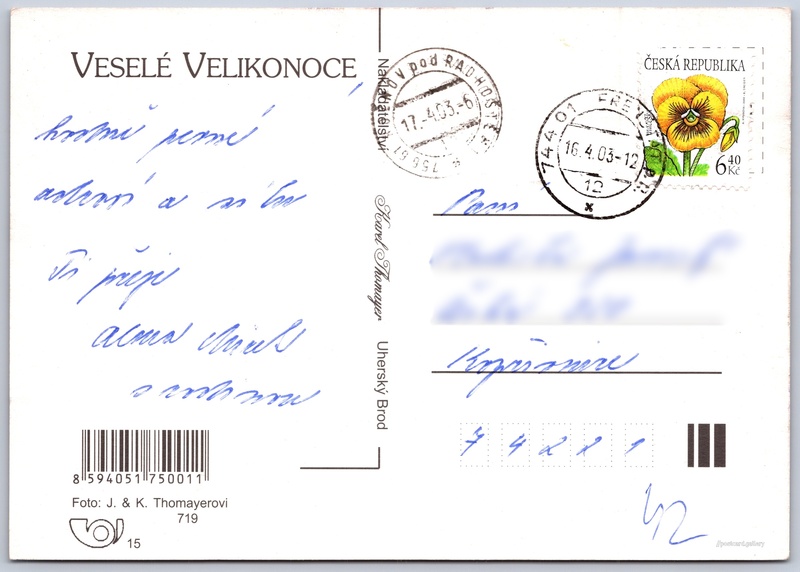 VESELÉ VELIKONOCE
hodně pevné
zdraví a síly
Ti přeje
Alena
s rodinou
8 594051 750011
Foto: J. & K. Thomayerovi
719
15
Nakladatelství Karel Thomayer Uherský Brod
POD RADHOŠTĚM
17.-4.03.-6
756 61
74401 FREN
16.4.03-12
12
ČESKÁ REPUBLIKA
6,40 Kč
Paní
Kopřivnice
7 4 2 2 1
42